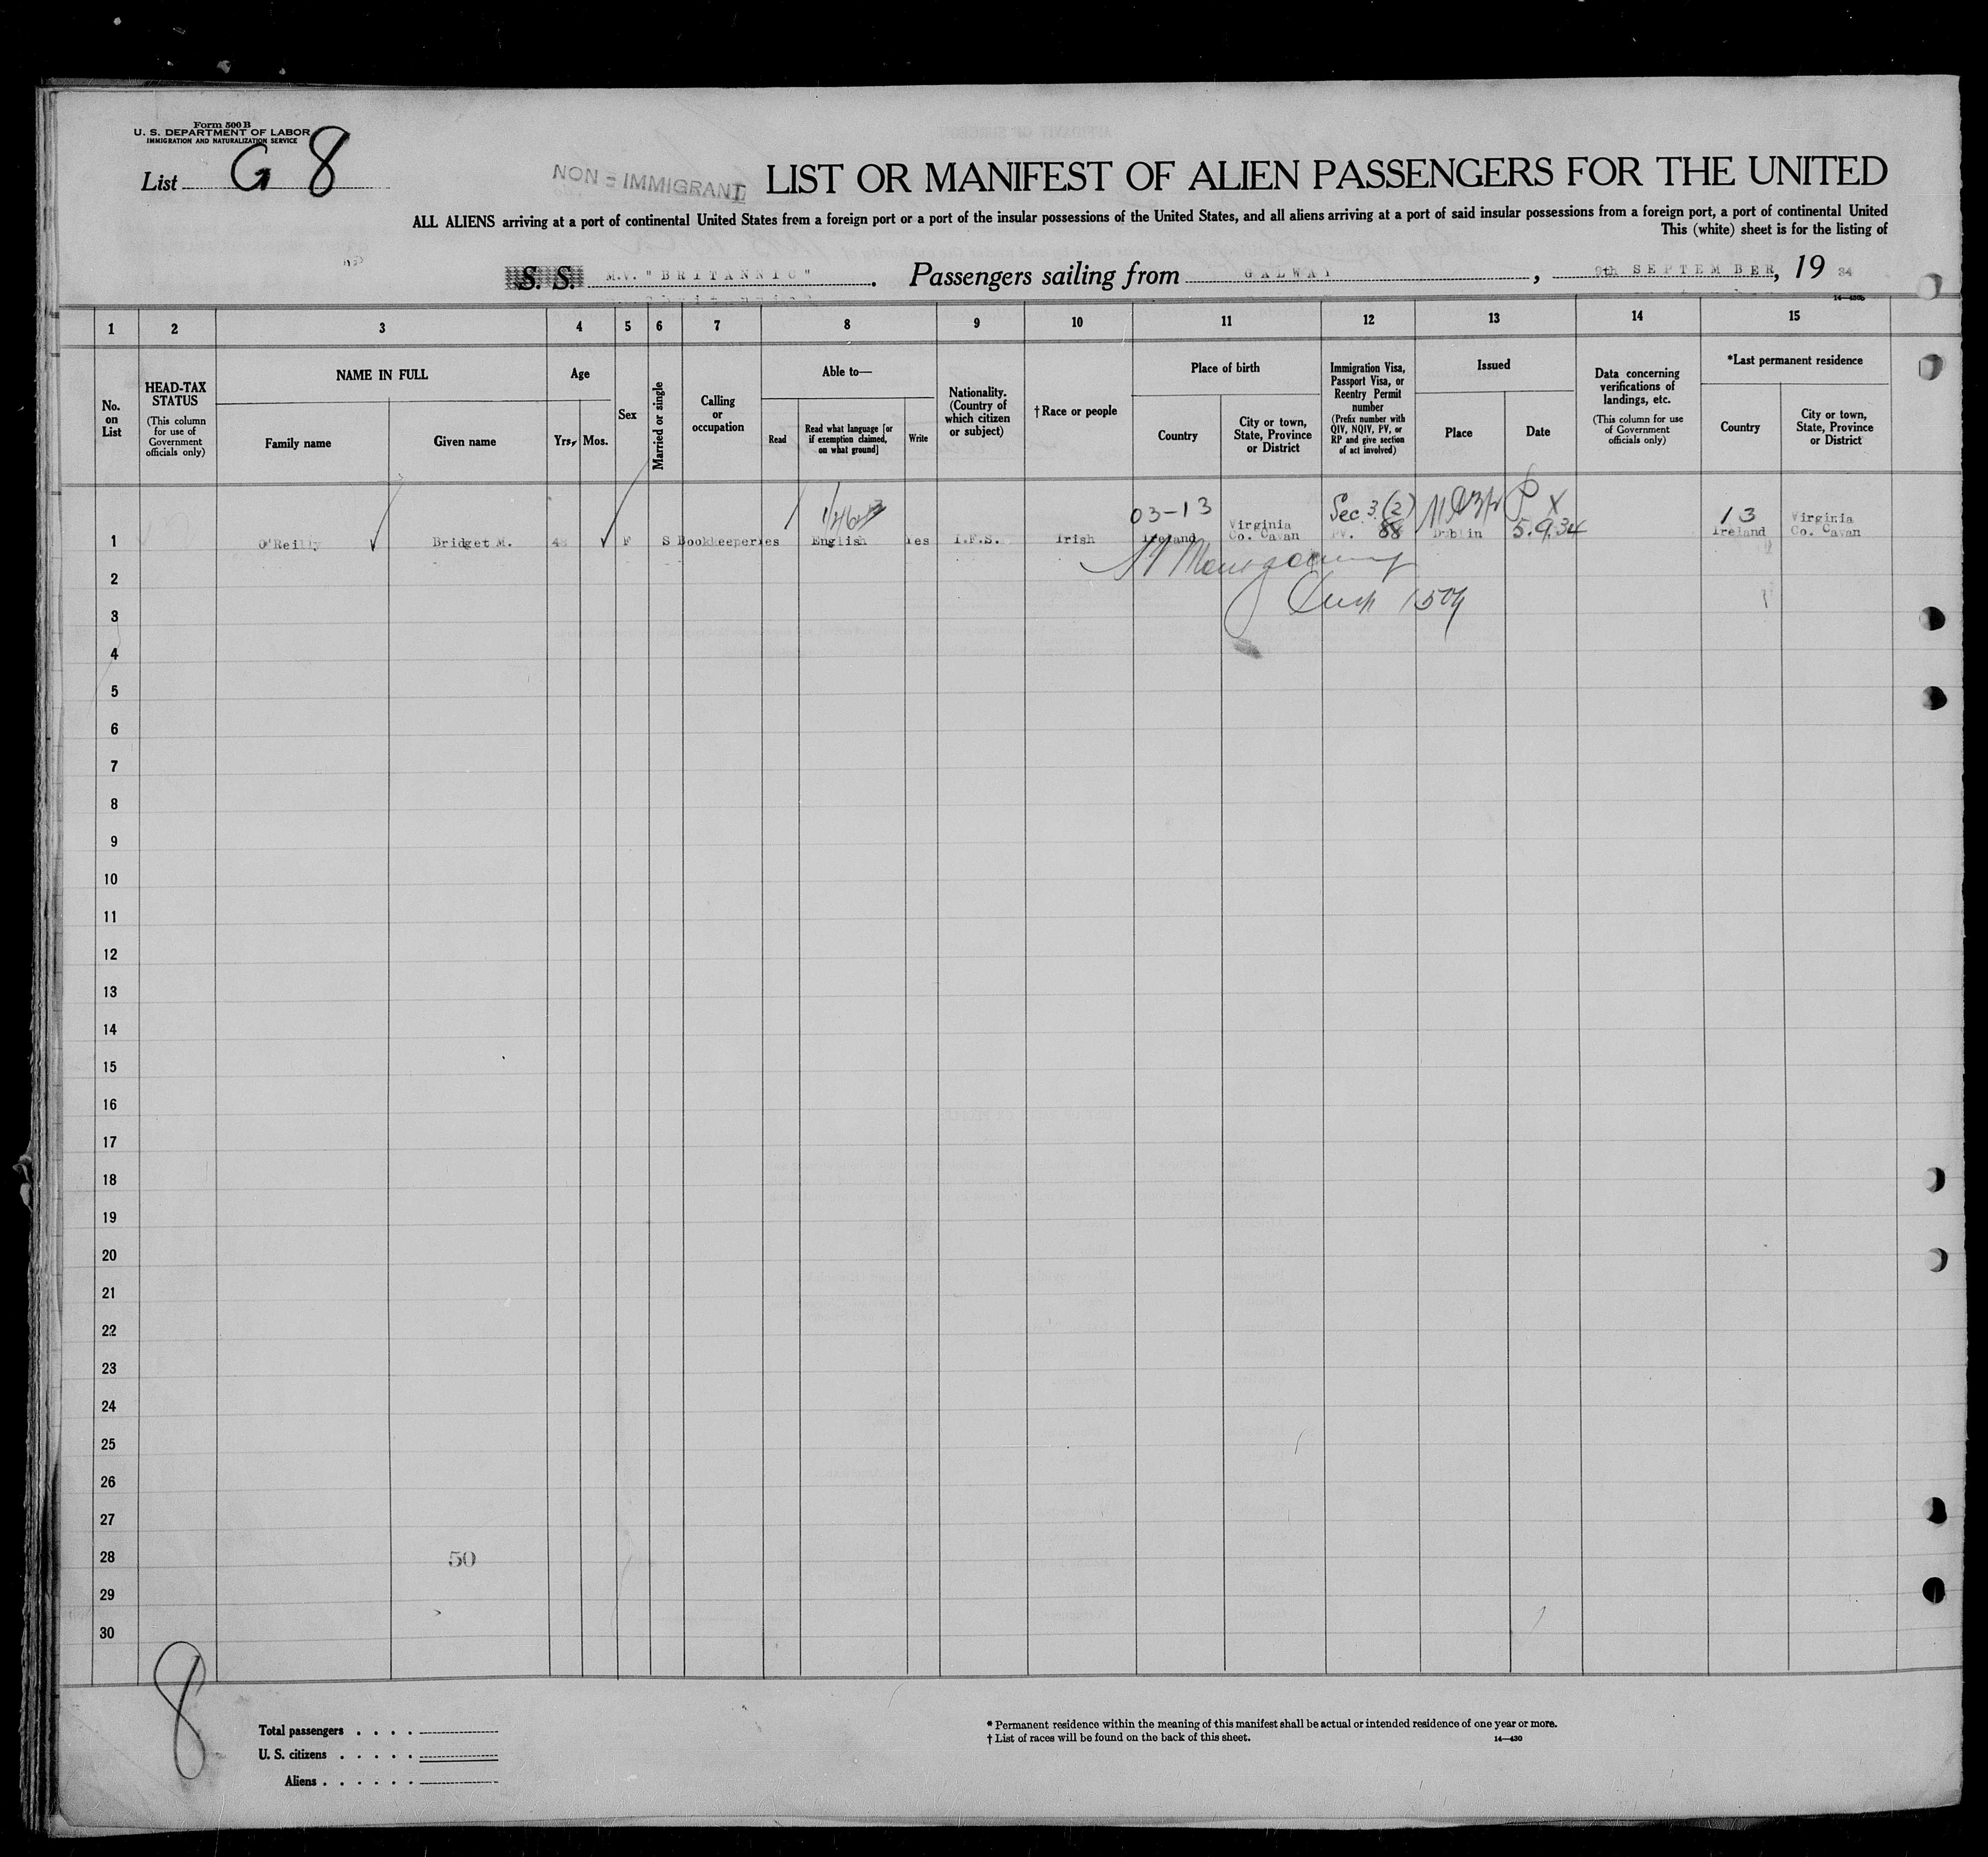 Form 500 B
U. S. DEPARTMENT OF LABOR
IMMIGRATION AND NATURALIZATION SERVICE
List G 8
NON = IMMIGRANT
LIST OR MANIFEST OF ALIEN PASSENGERS FOR THE UNITED
ALL ALIENS arriving at a port of continental United States from a foreign port or a port of the insular possessions of the United States, and all aliens arriving at a port of said insular possessions from a foreign port, a port of continental United
This (white) sheet is for the listing of
S. S. M.V. "BRITANNIC". Passengers sailing from GALWAY, 9th SEPTEMBER, 19 34
14—430b
1 2 3 4 5 6 7 8 9 10 11 12 13 14 15
No. on List
HEAD-TAX STATUS (This column for use of Government officials only)
NAME IN FULL
Family name
Given name
Age
Yrs.
Mos.
Sex
Married or single
Calling or occupation
Able to—
Read
Read what language [or if exemption claimed, on what ground]
Write
Nationality. (Country of which citizen or subject)
†Race or people
Place of birth
Country
City or town, State, Province or District
Immigration Visa, Passport Visa, or Reentry Permit number (Prefix number with QIV, NQIV, PV, or RP and give section of act involved)
Issued
Place
Date
Data concerning verifications of landings, etc. (This column for use of Government officials only)
*Last permanent residence
Country
City or town, State, Province or District
03-13 Sec 3.(2) X 13
Virginia Virginia
1 O'Reilly Bridget M. F S Bookkeeper Yes English Yes I.F.S. Irish Ireland Co. Cavan PV. 88 Dublin 5.9.34 Ireland Co. Cavan
2
3
4
5
6
7
8
9
10
11
12
13
14
15
16
17
18
19
20
21
22
23
24
25
26
27
28 50
29
30
8
Total passengers . . . .
U. S. citizens . . . . .
Aliens . . . . . .
* Permanent residence within the meaning of this manifest shall be actual or intended residence of one year or more.
† List of races will be found on the back of this sheet.
14—430